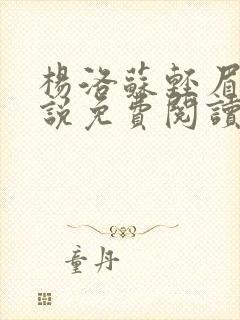 楊洛蘇輕眉
說免費閱讀
童丹